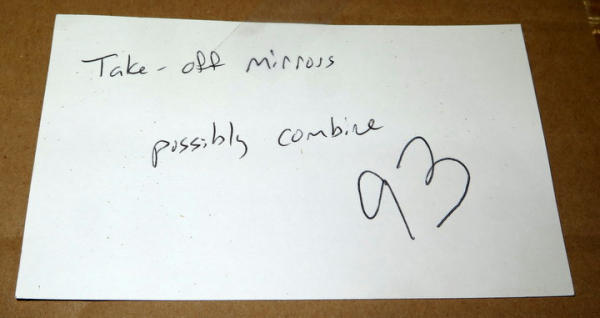 Take-off mirrors
possibly combine
93